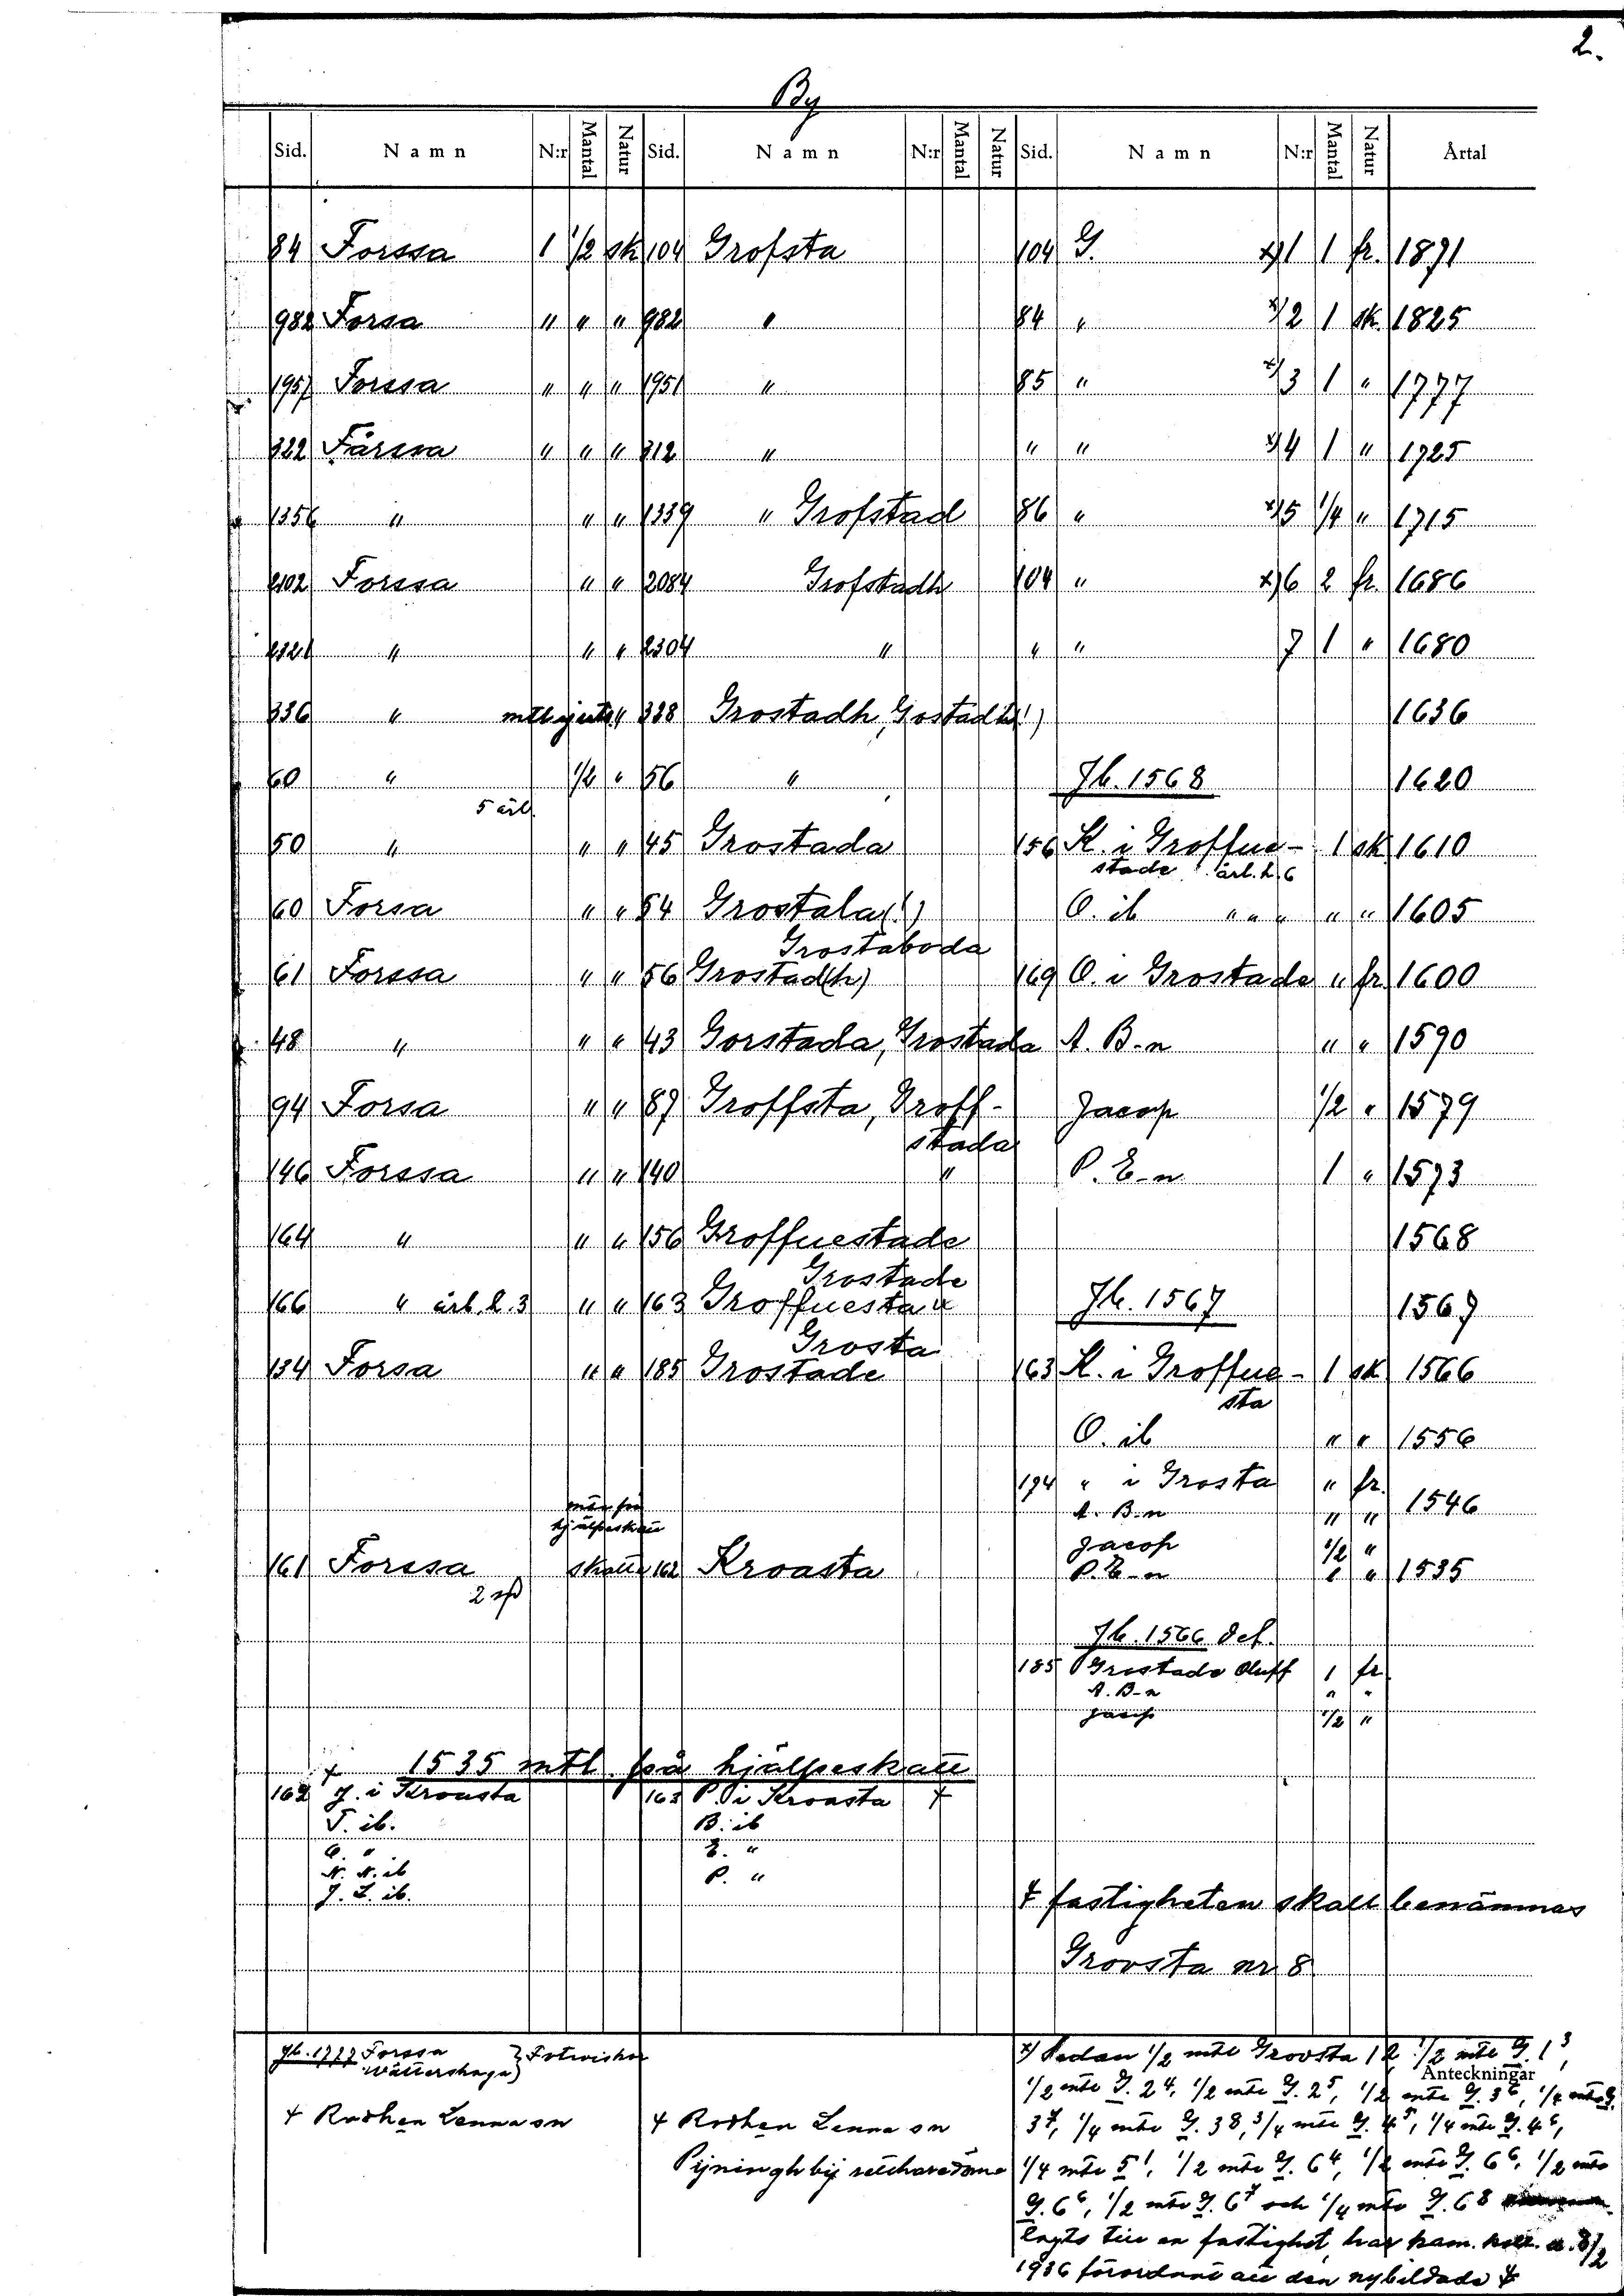 2.
By
Sid. Namn N:r Mantal Natur Sid. Namn N:r Mantal Natur Sid. Namn N:r Mantal Natur Årtal
84 Forssa 1 1/2 sk 104 Grofsta 104 G. x)1 1 fr. 1871
982 Forsa " " " 982 " 84 " x)2 1 sk. 1825
1957 Forssa " " " 1951 " 85 " x)3 1 " 1777
322 Fårssa " " " 312 " " " x)4 1 " 1725
1356 " " " 1339 " Grofstad 86 " x)5 1/4 " 1715
2102 Forssa " " 2084 Grofstadh 104 " x)6 2 fr. 1686
2321 " " " 2304 " " " 7 1 " 1680
336 " mtl " 338 Grostadh, Gostadh(!) 1636
60 " 1/2 " 56 " Jb. 1568 1620
5 årl.
50 " " " 45 Grostada 156 K. i Groffue- 1 sk 1610
stade årl. h. 6
60 Forsa " " 54 Grostala(!) O. ib " " " " " 1605
Grostaboda
61 Forssa " " 56 Grostad(h) 169 O. i Grostade " fr. 1600
48 " " " 43 Gorstada, Grostada A. B-n " " 1590
94 Forsa " " 87 Groffsta, Groff- Jacop 1/2 " 1579
stada
146 Forssa " " 140 " P. E-n 1 " 1573
164 " " " 156 Groffuestade 1568
Grostade
166 " årl. h. 3 " " 163 Groffuesta " Jb. 1567 1567
Grosta
134 Forsa " " 185 Grostade 163 K. i Groffue- 1 sk 1566
sta
O. ib " " 1556
174 " i Grosta " fr.
A. B-n " " 1546
hjälpeskatt
Jacop 1/2 "
161 Forssa skatte 162 Kroasta P. E-n " " 1535
2
Jb. 1566 Def.
185 Grostade Oluff 1 fr
A. B-n " "
Jacop 1/2 "
+ 1535 mtl från hjälpeskatt
162 J. i Kroasta 163 P. i Kroasta +
T. ib. B. ib
O. " E. "
N. N. ib P. "
J. L. ib.
+ fastigheten skall benämnas
Grovsta nr 8
Jb. 1777 Forssa
Wättershaga
+ Rothen Lenna sn
+ Rothen Lenna sn
Pijningh bij
x) Sedan 1/2 mtl Grovsta 1 2, 1/2 mtl G. 1 3,
Anteckningar
1/2 mtl G. 2 4, 1/2 mtl G. 2 5, 1/2 mtl G. 3 6, 1/4 mtl G.
3 7, 1/4 mtl G. 3 8, 3/4 mtl G. 4 5, 1/4 mtl G. 4 6,
1/4 mtl 5 1, 1/2 mtl G. 6 4, 1/2 mtl G. 6 6, 1/2 mtl
G. 6 6, 1/2 mtl G. 6 7 och 1/4 mtl G. 6 8
lagts till en fastighet, har kam. koll. d. 8/2
1936 förordnat att den nybildade +